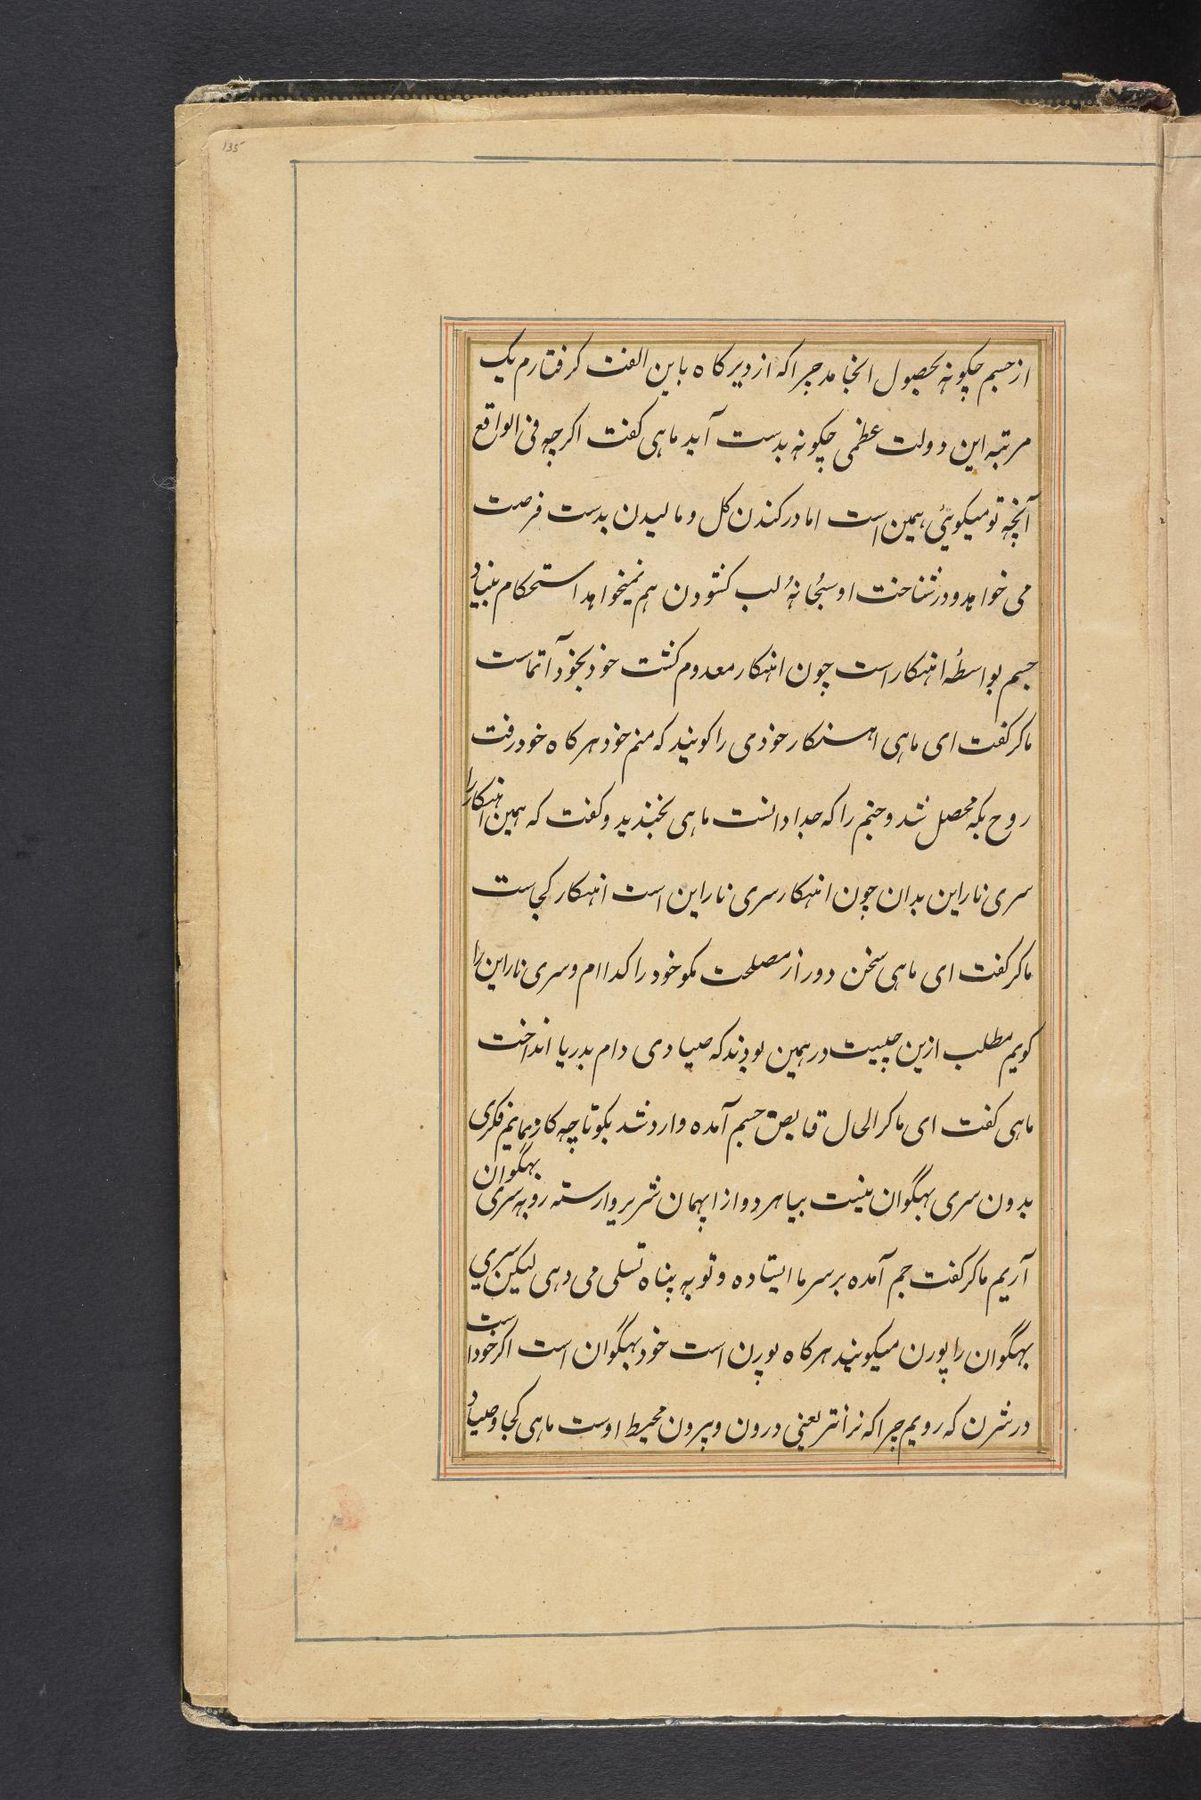 135
از جسم چکونه بحصول انجامد چرا که از دیر کاه باین الفت کرفتارم یک
مرتبه این دولت عظمی چکونه بدست آید ماهی کفت اکرچه فی الواقع
آنچه تو میکویئی همین است اما در کندن کل و مالیدن بدست فرصت
می خواهد و در شناخت او سبُحانهُ لب کشودن هم نمیخواهد استحکام بنیاد
جسم بواسطهٔ اهنکار است چون اهنکار معدوم کشت خود بخود آتماست
ماکر کفت ای ماهی اهنکار خودی را کویند که منم خود هرکاه خود رفت
روح بکه محصل شد و جنم را که جدا دانست ماهی بخندید و کفت که همین اهنکار را
سری ناراین بدان چون اهنکار سری ناراین است اهنکار کجاست
ماکر کفت ای ماهی سخن دور از مصلحت مکو خود را کدا ام و سری ناراین را
کویم مطلب ازین چیست در همین بودند که صیادی دام بدریا انداخت
ماهی کفت ای ماکر الحال قابض جسم آمده وارد شد بکو تا چه کار نمایم فکری
بدون سری بهگوان نیست بیا هر دو از ابهمان شریر وارسته رو به سری بهگوان
آریم ماکر کفت جم آمده بر سر ما ایستاده و تو به پناه تسلی می دهی لیکن سری
بهگوان را پورن میکویند هرکاه پورن است خود بهگوان است اکر خود است
در شرن که رویم چرا که نرانتر یعنی درون و بیرون محیط اوست ماهی کجا و صیاد